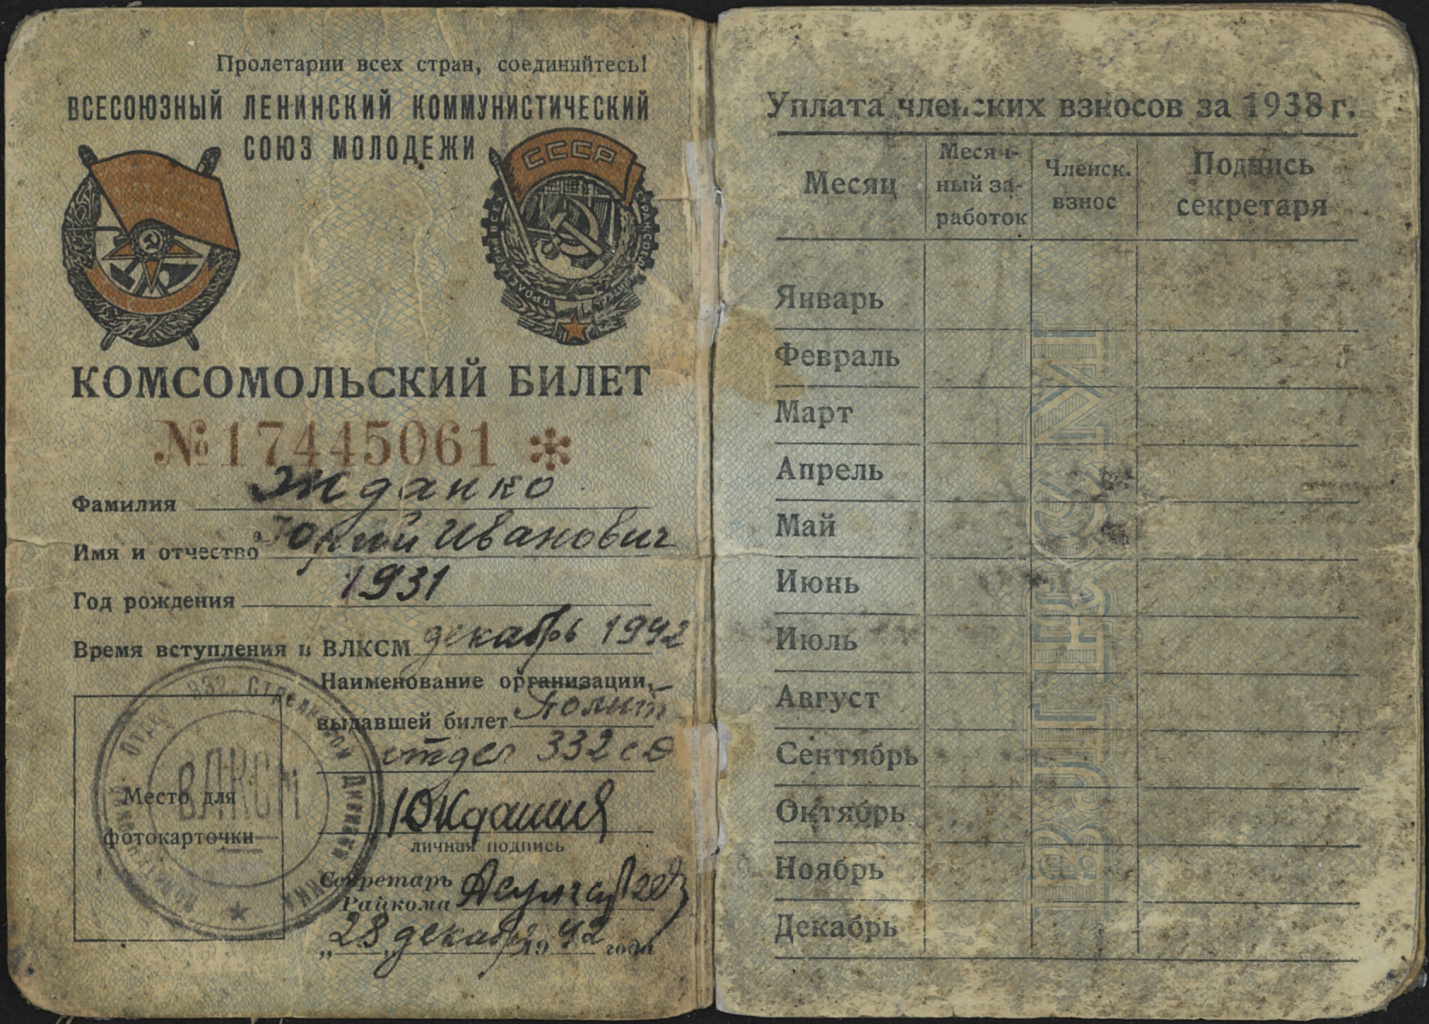 Пролетарии всех стран, соединяйтесь!
ВСЕСОЮЗНЫЙ ЛЕНИНСКИЙ КОММУНИСТИЧЕСКИЙ
СОЮЗ МОЛОДЕЖИ
СССР
КОМСОМОЛЬСКИЙ БИЛЕТ
№17445061 *
Фамилия Жданко
Имя и отчество Юрий Иванович
Год рождения 1931
Время вступления в ВЛКСМ декабрь 1942
Наименование организации,
выдавшей билет Полит
отдел 332 сд
Место для
фотокарточки
ВЛКСМ
332 Стрелковой Дивизии
личная подпись
Секретарь
Райкома
„28" декабря 1942 года
Уплата членских взносов за 1938 г.
Месяц
Месяч-
ный за-
работок
Членск.
взнос
Подпись
секретаря
Январь
Февраль
Март
Апрель
Май
Июнь
Июль
Август
Сентябрь
Октябрь
Ноябрь
Декабрь
ВЛКСМ